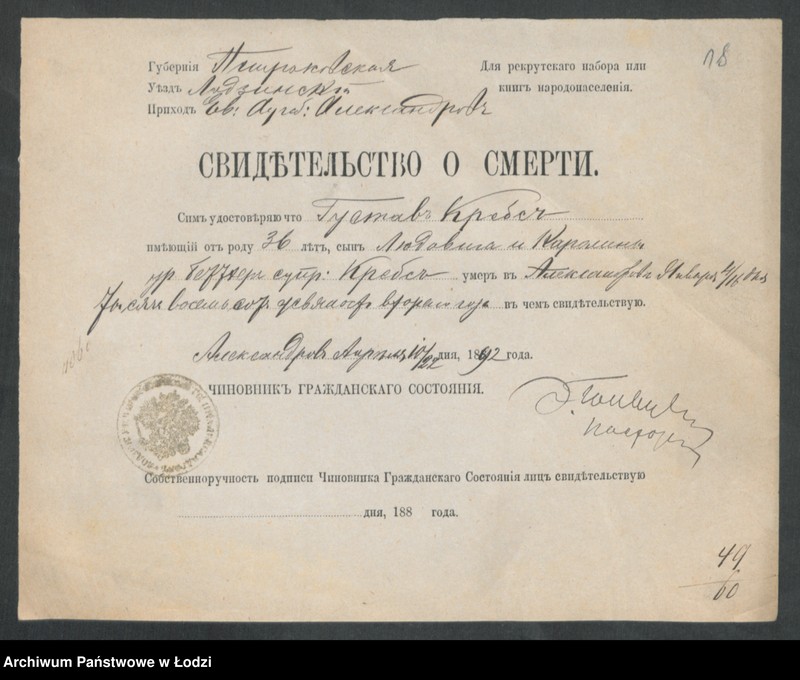 18
Губернія Петроковская
Для рекрутскаго набора или
Уѣздъ Лодзинскій
книгъ народонаселенія.
Приходъ Ев: Аугсб: Александровъ
СВИДѢТЕЛЬСТВО О СМЕРТИ.
Симъ удостовѣряю что Густавъ Кребсъ
имѣющій отъ роду 36 лѣтъ, сынъ Людвига и Каролины
ур. супр: Кребсъ умеръ въ Александровѣ Января дня
Тысяча восемьсотъ девяностъ втораго года въ чемъ свидѣтельствую.
Александровъ Апрѣля 10/22 дня, 1892 года.
ЧИНОВНИКЪ ГРАЖДАНСКАГО СОСТОЯНІЯ.
Пасторъ
Собственноручность подписи Чиновника Гражданскаго Состоянія лицъ свидѣтельствую
дня, 188 года.
49
60
Archiwum Państwowe w Łodzi